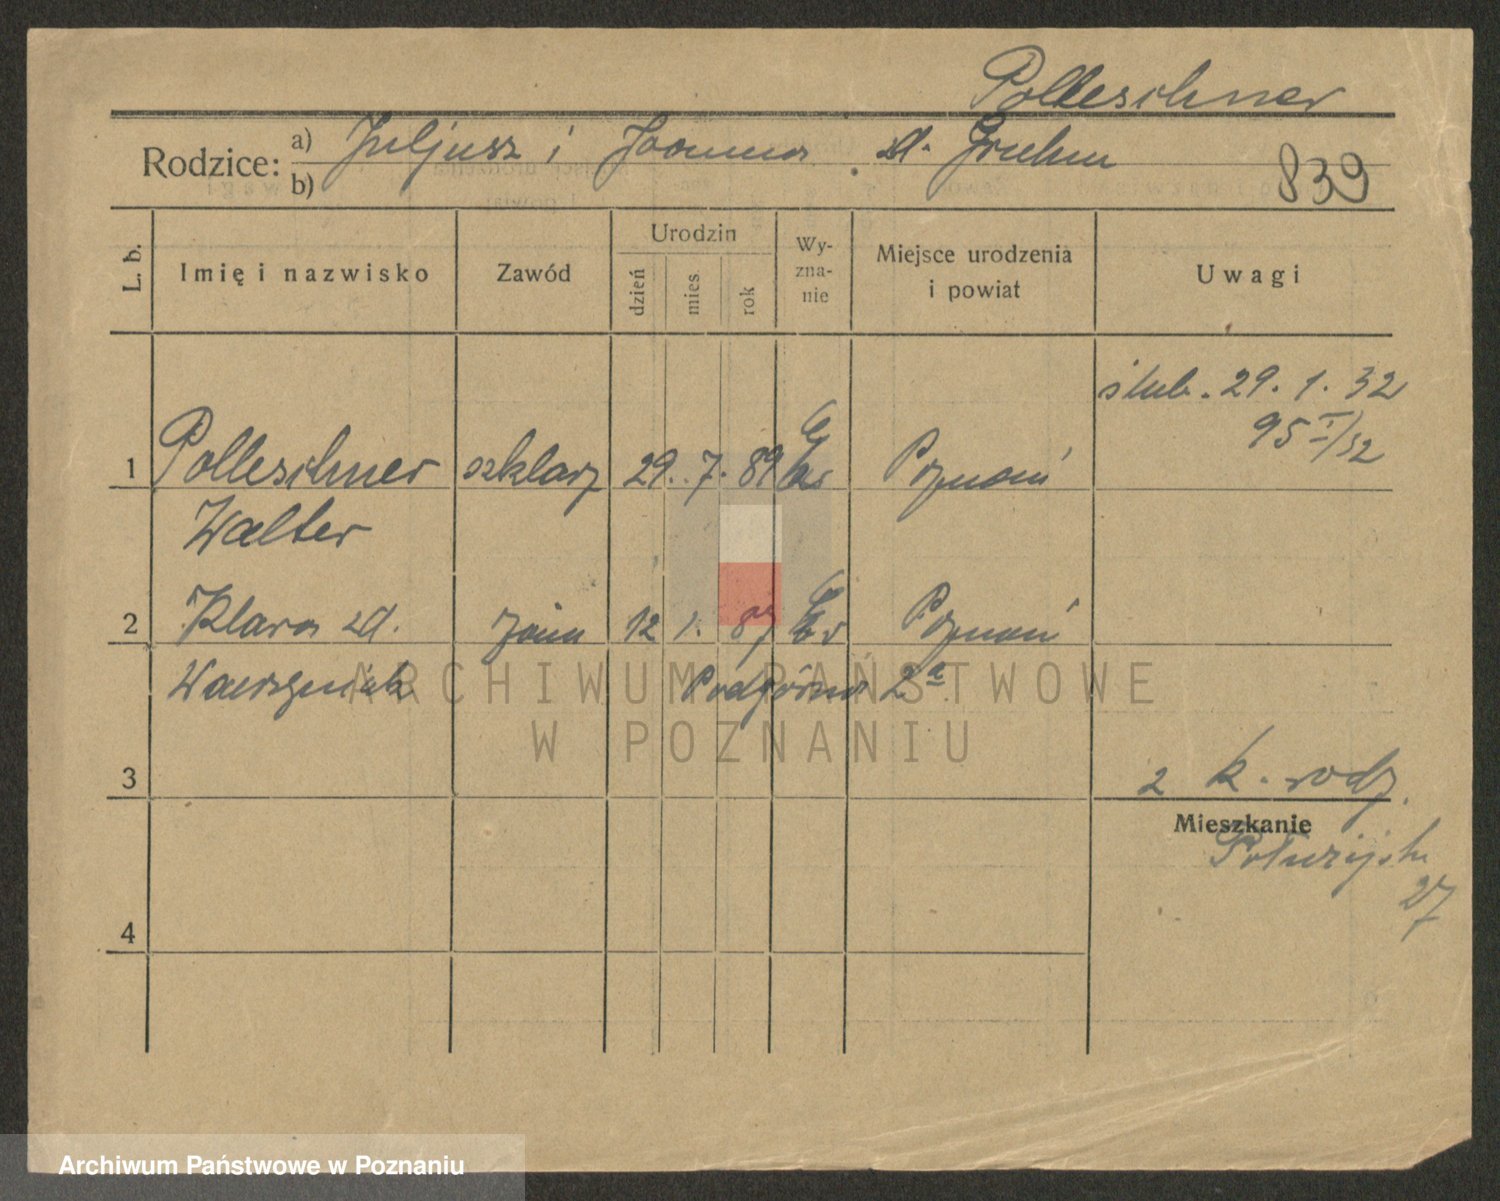 Polleschner
Rodzice: a) Juljusz i Joanna d. Gruhn
b)
839
L. b.
Imię i nazwisko
Zawód
Urodzin
dzień
mies
rok
Wy-
zna-
nie
Miejsce urodzenia
i powiat
Uwagi
ślub. 29. 1. 32
95 I/32
1 Polleschner szklarz 29. 7. 89 Ew Poznań
Walter
2 Klara d. żona 12 1. 87 Ew Poznań
Podgórna 2a
3
2 k. rodz.
Mieszkanie
27
4
ARCHIWUM PAŃSTWOWE
W POZNANIU
Archiwum Państwowe w Poznaniu